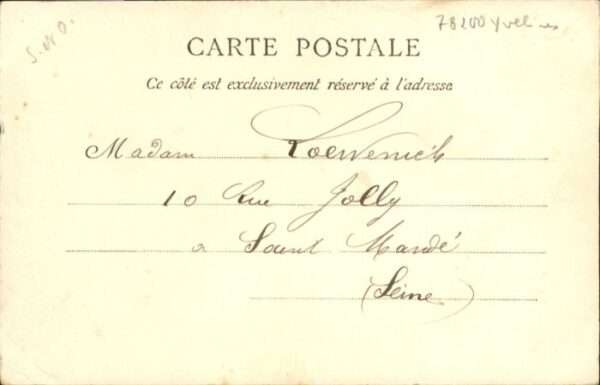 S. et O.
78200 Yvelines
CARTE POSTALE
Ce côté est exclusivement réservé à l'adresse
Madam Loewenich
10 Rue Jolly
a Saint Mandé
(Seine)